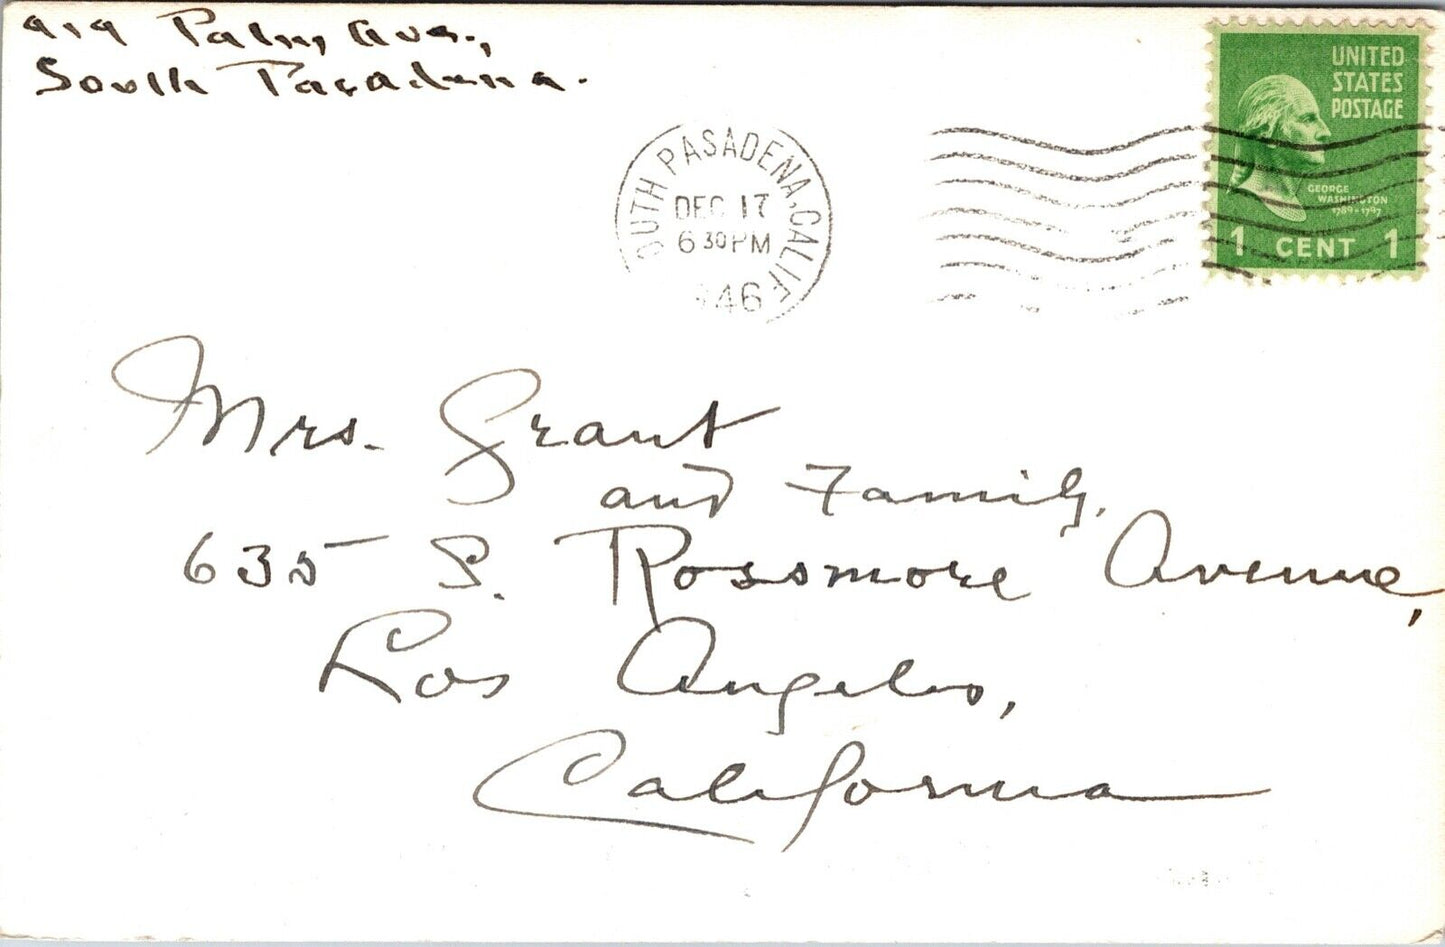 919 Palm Ave.,
South Pasadena.
SOUTH PASADENA, CALIF.
DEC 17
6 30 PM
46
UNITED
STATES
POSTAGE
GEORGE
WASHINGTON
1789-1797
1 CENT 1
Mrs. Grant
and Family,
635 S. Rossmore Avenue,
Los Angeles,
California